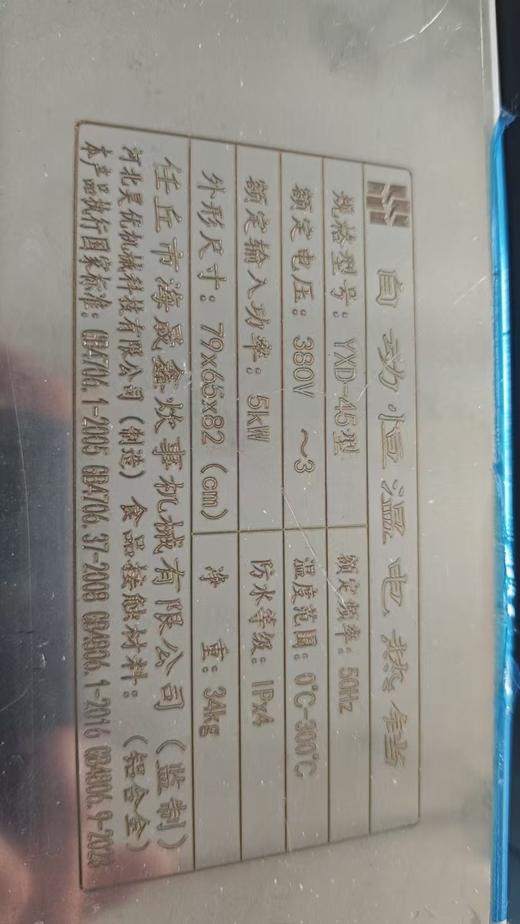 自动恒温电热铛
规格型号：YXD-45型 额定频率：50Hz
额定电压：380V ～3 温度范围：0℃-300℃
额定输入功率：5kW 防水等级：IPx4
外形尺寸：79x66x82（cm） 净 重：34kg
任丘市海晟鑫炊事机械有限公司（监制）
河北昊优机械科技有限公司（制造） 食品接触材料：（铝合金）
本产品执行国家标准：GB4706.1-2005 GB4706.37-2008 GB4806.1-2016 GB4806.9-2023